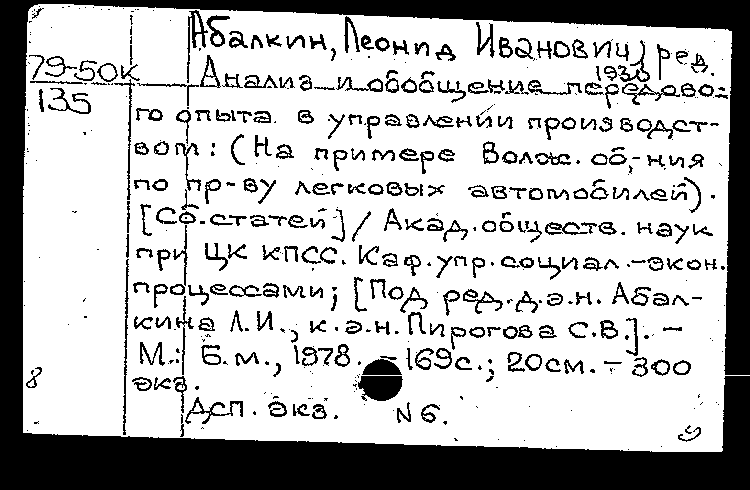 Абалкин, Леонид Иванович, ред.
1930
79-50к
Анализ и обобщение передово-
135
го опыта в управлении производст-
вом: (На примере Волж. об-ния
по пр-ву легковых автомобилей).
[Сб. статей] / Акад. обществ. наук
при ЦК КПСС. Каф. упр. социал.-экон.
процессами; [Под ред. д.э.н. Абал-
кина Л.И., к.э.н. Пирогова С.В.]. –
М.: Б.м., 1978. – 169с.; 20см. – 300
8
экз.
ДСП. Экз. N 6.